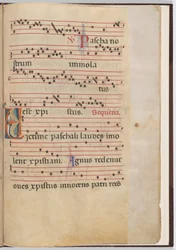 Pascha no
strum immola
tus
est xpi stus. Sequentia.
Victime paschali laudes imo
lent xpistiani. Agnus redemit
oues xpistus innocens patri reco